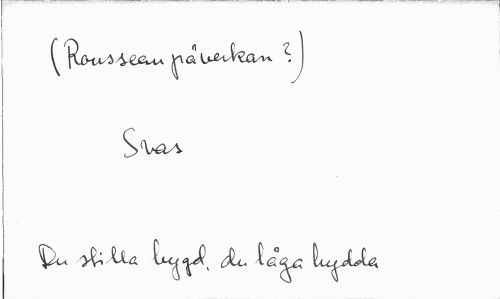 (Rousseau påverkan?)
Svas
Du stilla bygd, du låga hydda